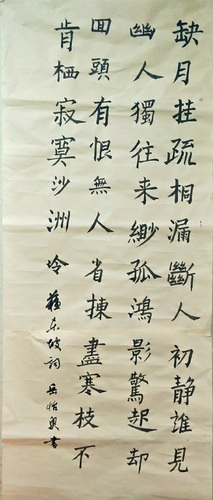 缺月挂疏桐漏斷人初静誰見
幽人獨往来缈孤鴻影驚起却
回頭有恨無人省揀盡寒枝不
肯栖寂寞沙洲冷 蘇东坡詞 岳